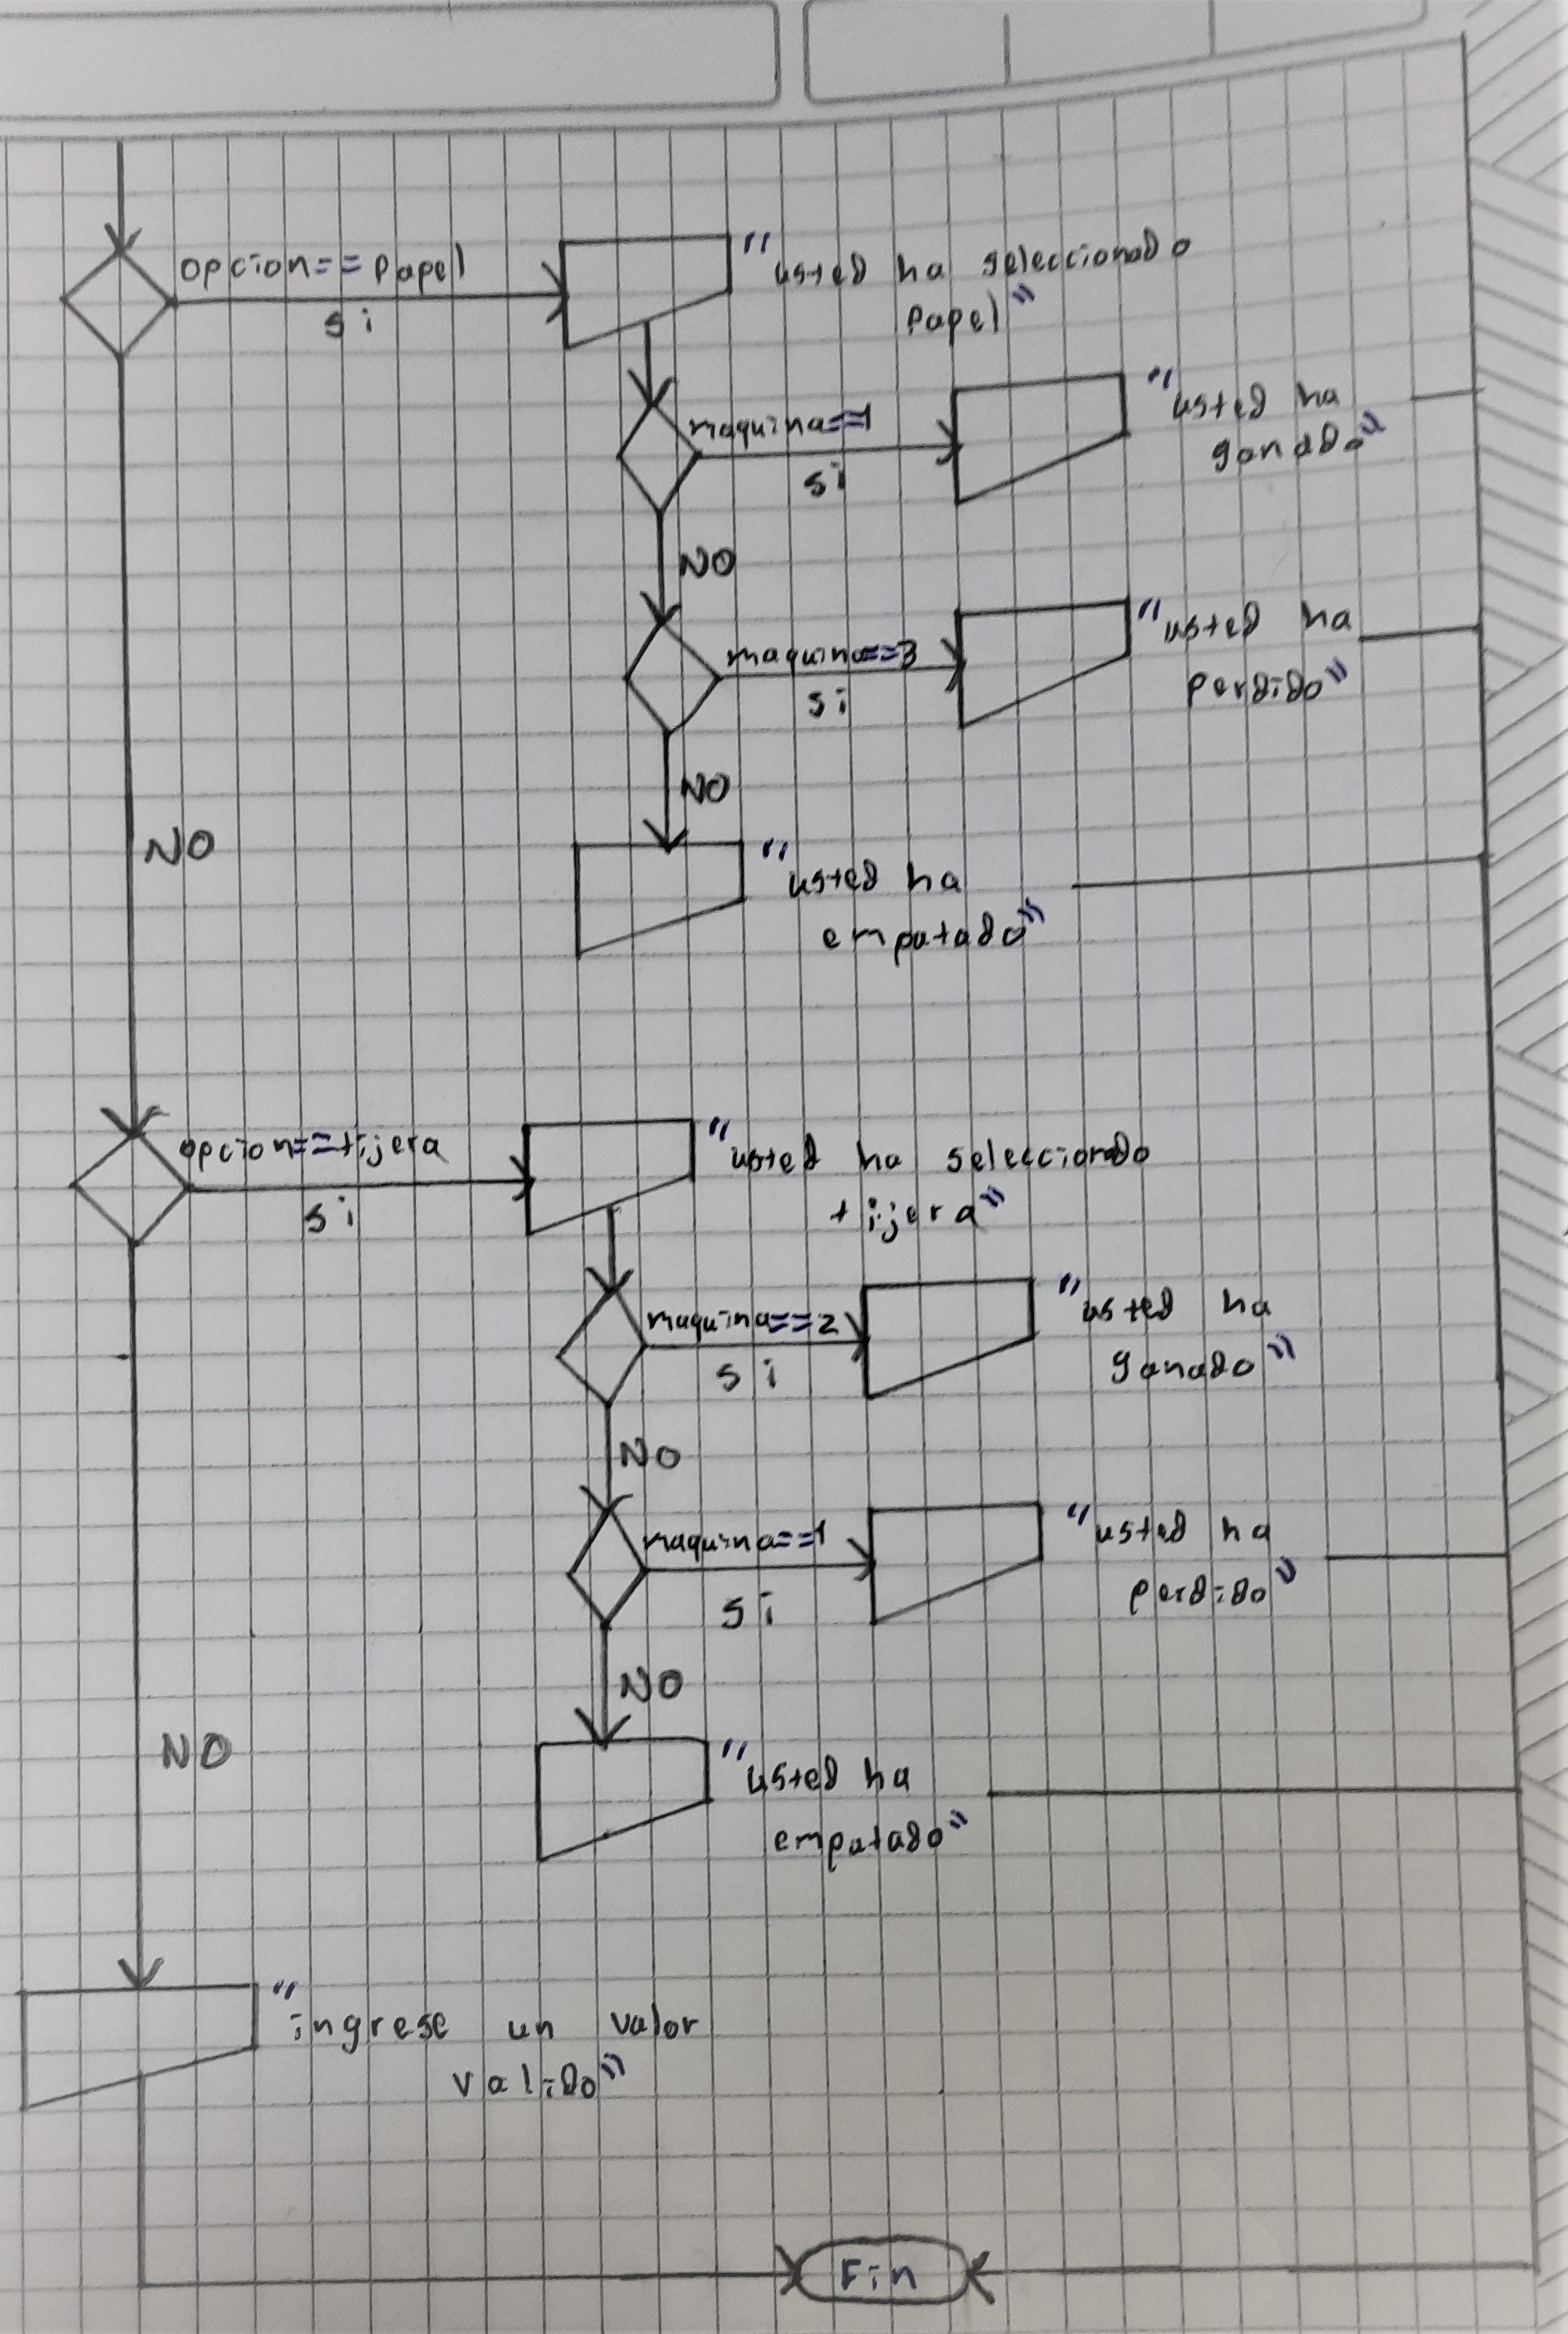 opcion==papel
si
"usted ha seleccionado
papel"
maquina==1
si
"usted ha
ganado"
NO
maquina==3
si
"usted ha
perdido"
NO
NO
"usted ha
empatado"
opcion==tijera
si
"usted ha seleccionado
tijera"
maquina==2
si
"usted ha
ganado"
NO
maquina==1
si
"usted ha
perdido"
NO
NO
"usted ha
empatado"
"ingrese un valor
valido"
Fin